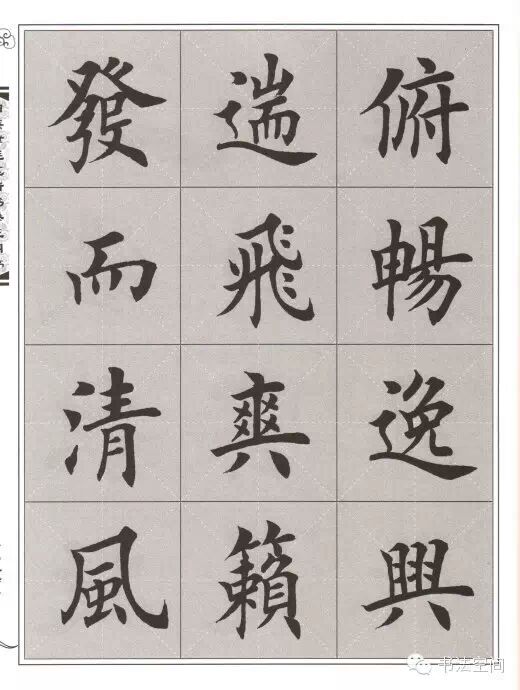 俯暢逸興
遄飛爽籟
發而清風
书法空间